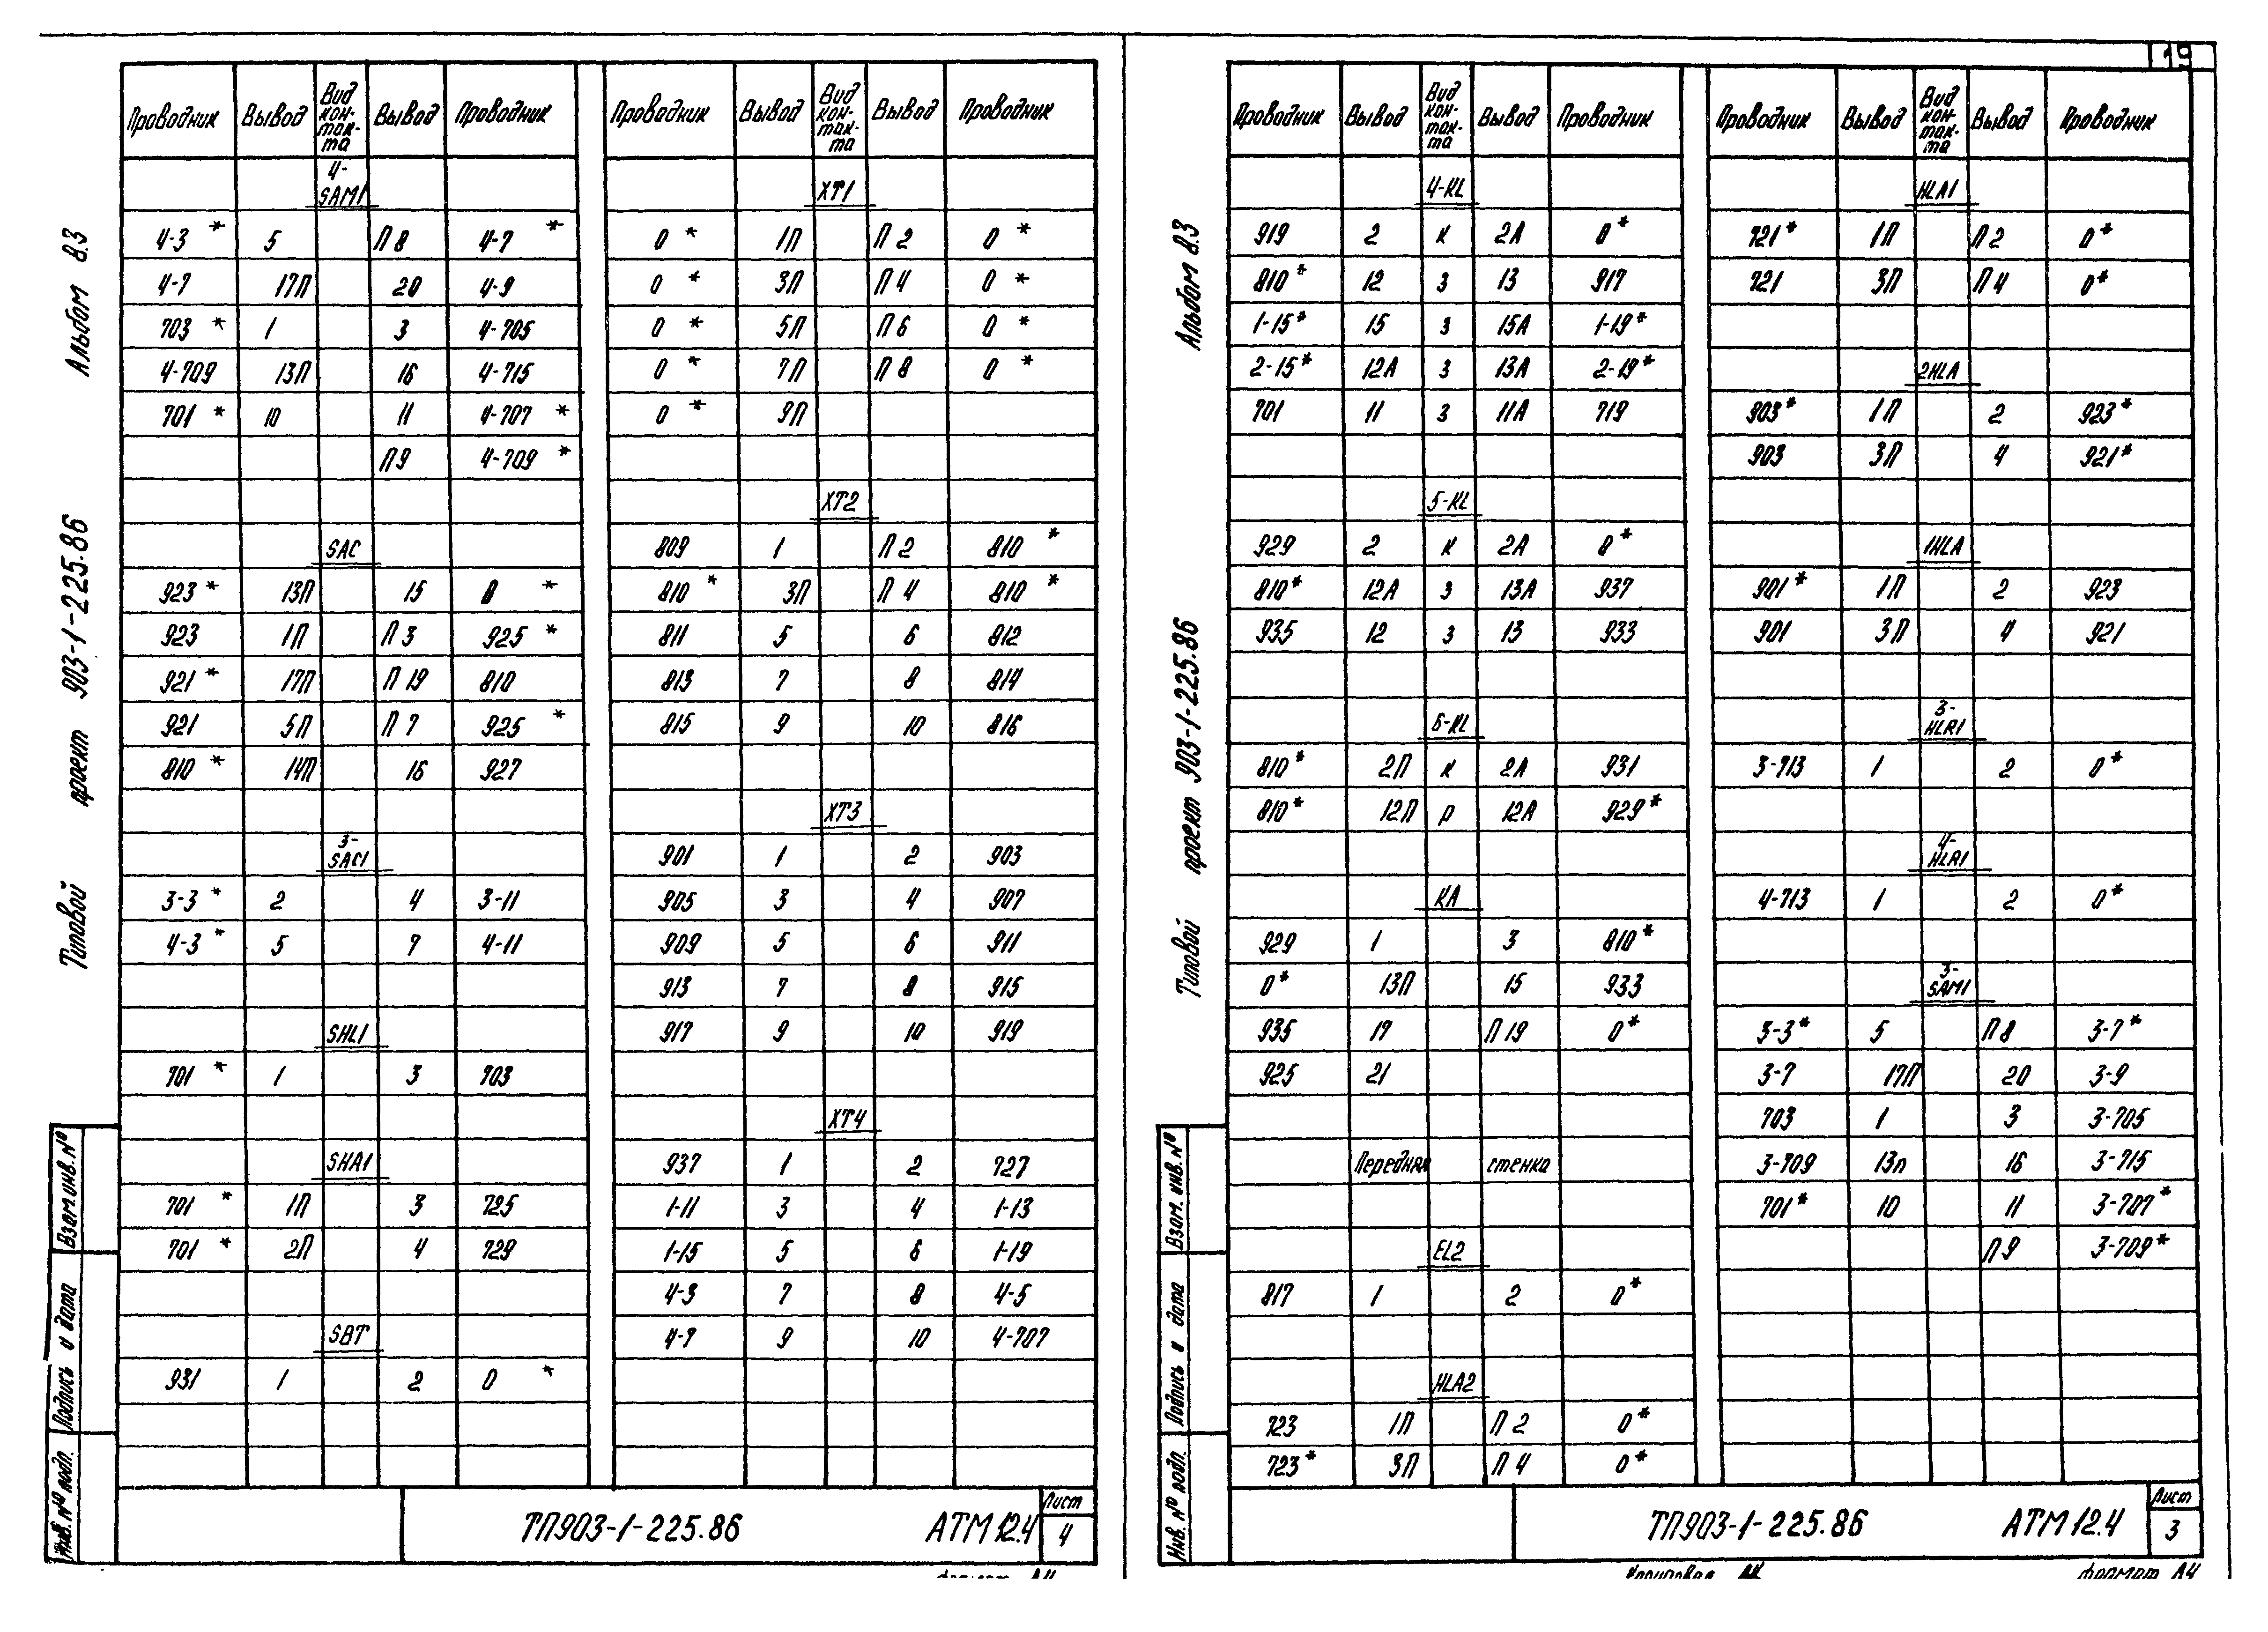 19
Проводник Вывод Вид кон-так-та Вывод Проводник
4-SAM1
4-3 * 5 П 8 4-7 *
4-7 17П 20 4-9
703 * 1 3 4-705
4-709 13П 16 4-715
701 * 10 11 4-707 *
П9 4-709 *
SAC
923 * 13П 15 0 *
923 1П П 3 925 *
921 * 17П П 19 810
921 5П П 7 925 *
810 * 14П 16 927
3-SAC1
3-3 * 2 4 3-11
4-3 * 5 7 4-11
SHL1
701 * 1 3 703
SHA1
701 * 1П 3 725
701 * 2П 4 729
SBT
931 1 2 0 *
Проводник Вывод Вид кон-так-та Вывод Проводник
XT1
0 * 1П П 2 0 *
0 * 3П П 4 0 *
0 * 5П П 6 0 *
0 * 7П П 8 0 *
0 * 9П
XT2
809 1 П 2 810 *
810 * 3П П 4 810 *
811 5 6 812
813 7 8 814
815 9 10 816
XT3
901 1 2 903
905 3 4 907
909 5 6 911
913 7 8 915
917 9 10 919
XT4
937 1 2 727
1-11 3 4 1-13
1-15 5 6 1-19
4-3 7 8 4-5
4-7 9 10 4-707
Альбом 8.3
Типовой проект 903-1-225.86
Взам. инв. №
Подпись и дата
Инв. № подл.
ТП903-1-225.86 АТМ 12.4
Лист
4
Проводник Вывод Вид кон-так-та Вывод Проводник
4-KL
919 2 к 2А 0*
810* 12 з 13 917
1-15* 15 з 15А 1-19*
2-15* 12А з 13А 2-19*
701 11 з 11А 719
5-KL
929 2 к 2А 0*
810* 12А з 13А 937
935 12 з 13 933
6-KL
810* 2П к 2А 931
810* 12П р 12А 929*
KA
929 1 3 810*
0* 13П 15 933
935 17 П 19 0*
925 21
Передняя стенка
EL2
817 1 2 0*
HLA2
723 1П П 2 0*
723* 3П П 4 0*
Проводник Вывод Вид кон-так-та Вывод Проводник
HLA1
721* 1П П 2 0*
721 3П П 4 0*
2HLA
903* 1П 2 923*
903 3П 4 921*
1HLA
901* 1П 2 923
901 3П 4 921
3-HLR1
3-713 1 2 0*
4-HLR1
4-713 1 2 0*
3-SAM1
3-3* 5 П 8 3-7*
3-7 17П 20 3-9
703 1 3 3-705
3-709 13п 16 3-715
701* 10 11 3-707*
П 9 3-709*
Альбом 8.3
Типовой проект 903-1-225.86
Взам. инв. №
Подпись и дата
Инв. № подл.
ТП903-1-225.86 АТМ 12.4
Лист
3
Копировал
формат А4